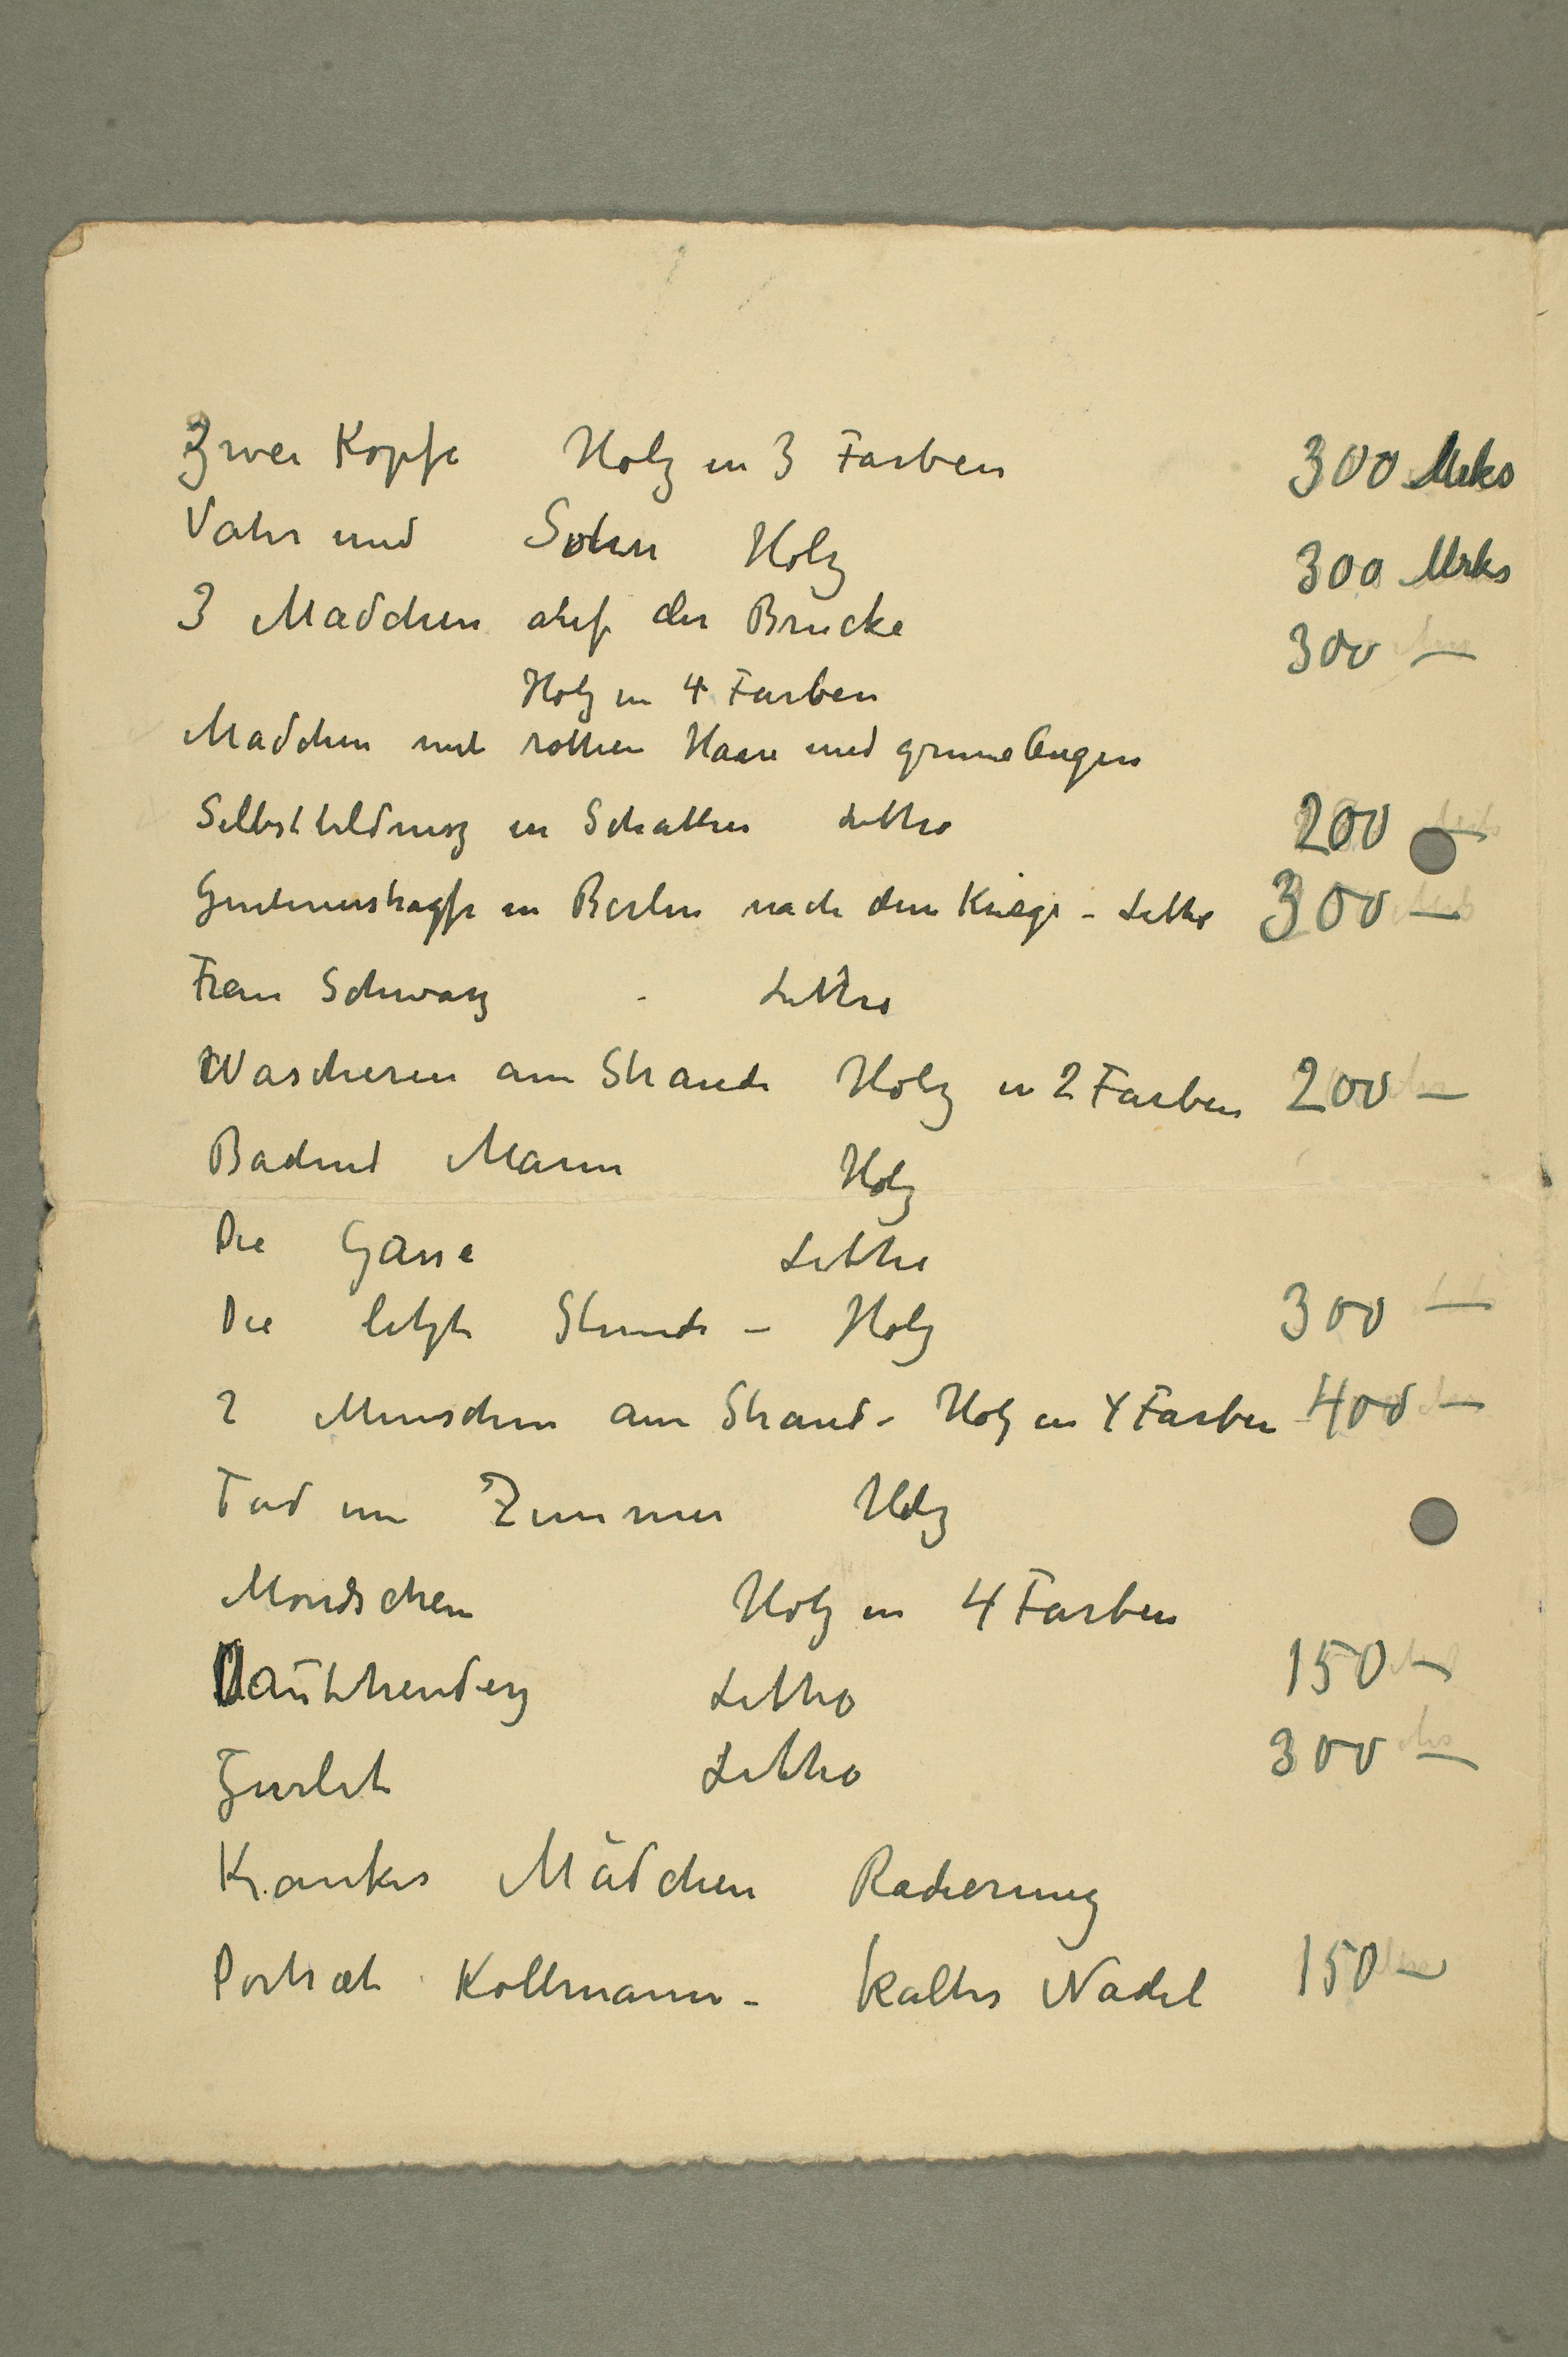 Zwei Kopfe Holz in 3 Farben 300 Mrks
Vater und Sohn Holz 300 Mrks
3 Madchen auf der Brucke 300 —
Holz in 4 Farben
Madchen mit rothen Haare und grune Augen
Selbstbildnisz in Schatten Litho 200 —
in Berlin nach dem Kriege - Litho 300 —
Frau Schwarz - Litho
Wascheren am Strande Holz in 2 Farben 200 —
Badend Mann Holz
Die Gasse Litho
Die letzte Stunde - Holz 300 —
2 Menschen am Strand - Holz in 4 Farben 400 —
Tod im Zimmer Holz
Mondschein Holz in 4 Farben
Dauthendey Litho 150 —
Gurlit Litho 300 —
Krankes Mädchen Radierung
Portræt Kollmann - kaltes Nadel 150 —